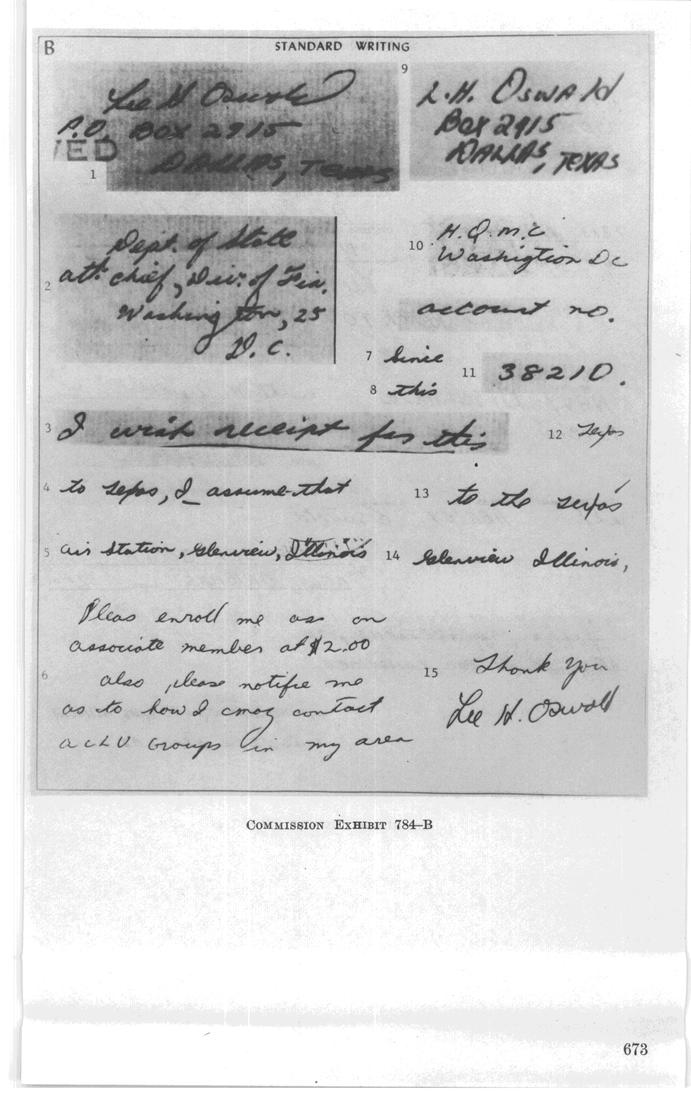 B
STANDARD WRITING
Lee H Oswald
P.O. BOX 2915
VED
DALLAS, TEXAS
1
9
L.H. OSWALD
BOX 2915
DALLAS, TEXAS
2
Dept. of State
att: chief, Div. of Fin.
Washington, 25
D.C.
10
H.Q.M.C
Washigtion Dc
account no.
7 Since
8 this
11 38210.
3 I wish receipt for this
12
4 to, I assume that
13 to the
5 air station, Glenview, Illinois
14 Glenview Illinois,
6
Pleas enroll me as an
associate member at $2.00
also, please notifie me
as to how I cmag contact
ACLU Groups in my area
15 Thank You
Lee H. Oswald
COMMISSION EXHIBIT 784–B
673